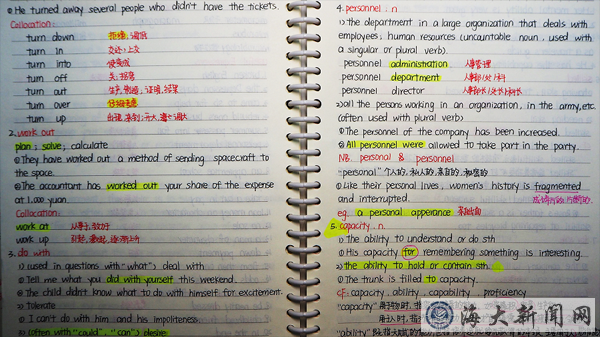 He turned away several people who didn't have the tickets.
Collocation:
turn down 拒绝;调低
turn in 交还;上交
turn into 使变成
turn off 关;拐弯
turn out 生产;制造;证明;结果
turn over 仔细考虑
turn up 出现,来到;开大,调大
2. work out
plan; solve; calculate
①They have worked out a method of sending spacecraft to
the space.
②The accountant has worked out your share of the expense
at 1.000 yuan.
Collocation:
work at 从事;致力
work up
3. do with
1) (used in questions with "what") deal with
①Tell me what you did with yourself this weekend.
②The child didn't know what to do with himself for excitement.
2) tolerate
I can't do with him and his impoliteness.
3) (often with "could", "can") desire
4. personnel . n
1) the department in a large organization that deals with
employees; human resources (uncountable noun, used with
a singular or plural verb).
personnel administration 人事管理
personnel department 人事部/处/科
personnel director 人事部长/处长/科长
2) all the persons working in an organization, in the army, etc.
(often used with plural verb)
①The personnel of the company has been increased.
②All personnel were allowed to take part in the party.
NB. personal & personnel
"personal" 个人的,私人的,亲自的,和
①Like their personal lives, women's history is fragmented
and interrupted.
eg. a personal apperance 亲自出面
5. capacity . n.
1) the ability to understand or do sth
①His capacity for remembering something is interesting.
2) the ability to hold or contain sth.
①The trunk is filled to capacity.
cf: capacity, ability, capability, proficiency
"capacity" 用于物时,指
用于人时,指
"ability"
海大新闻网